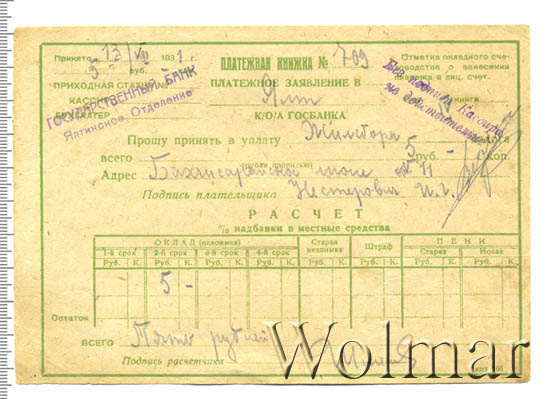 Принято 13/VIII 1931 г.
ПЛАТЕЖНАЯ КНИЖКА № 709
Отметка окладного сче-
товодства о занесении
платежа в лиц. счет.
5 - руб.
ПРИХОДНАЯ СТАТЬЯ №
ПЛАТЕЖНОЕ ЗАЯВЛЕНИЕ В
КАССИР
Ялт
книга
БУХГАЛТЕР
К/О/А ГОСБАНКА
ГОСУДАРСТВЕННЫЙ БАНК
Ялтинское Отделение
Без подписи Кассира
не действительно
Прошу принять в уплату
всего 5 руб. - коп.
(рубли прописью)
Адрес Бахчисарайское № 11
Подпись плательщика Нестерович И.
РАСЧЕТ
% надбавки в местные средства
ОКЛАД (недоимка) Старая недоимка Штраф ПЕНИ
1-й срок 2-й срок 3-й срок 4-й срок Старая Новая
Руб. К. Руб. К. Руб. К. Руб. К. Руб. К. Руб. К. Руб. К. Руб. К.
5 -
Остаток
ВСЕГО Пять рублей
Подпись расчетчика
Wolmar